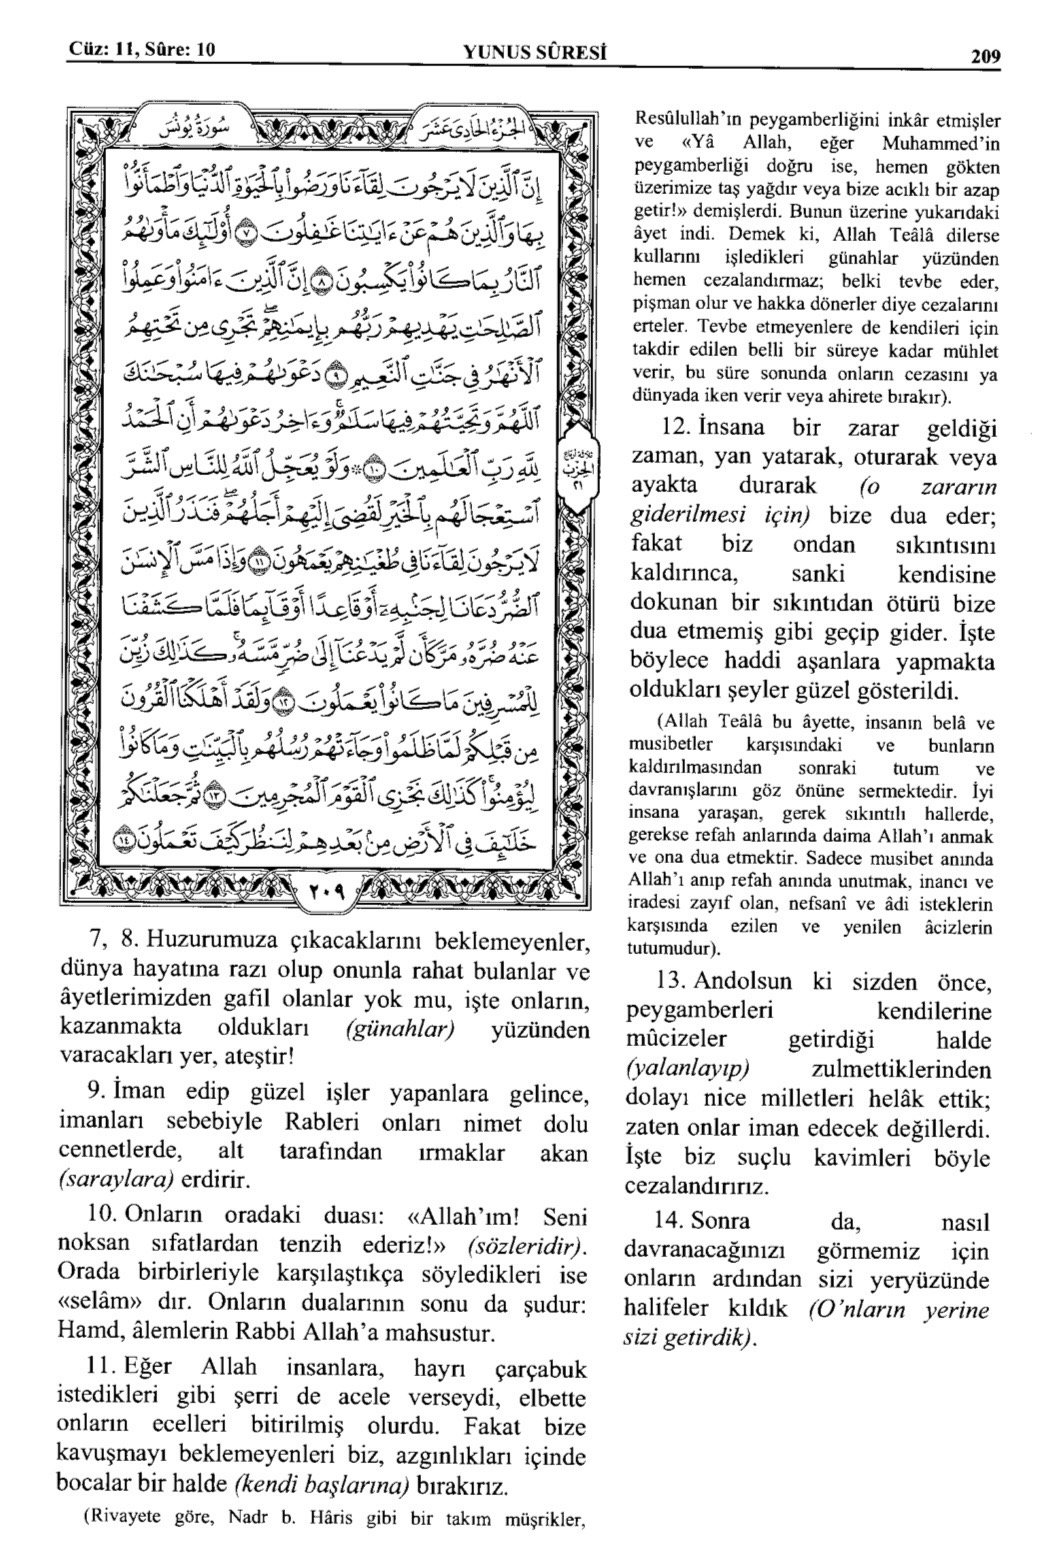 Cüz: 11, Sûre: 10
YUNUS SÛRESİ
209
سُورَةُ يُونُسَ
الجُزْءُ الحَادِي عَشَرَ
إِنَّ ٱلَّذِينَ لَا يَرْجُونَ لِقَآءَنَا وَرَضُوا۟ بِٱلْحَيَوٰةِ ٱلدُّنْيَا وَٱطْمَأَنُّوا۟
بِهَا وَٱلَّذِينَ هُمْ عَنْ ءَايَٰتِنَا غَٰفِلُونَ ٧ أُو۟لَٰٓئِكَ مَأْوَىٰهُمُ
ٱلنَّارُ بِمَا كَانُوا۟ يَكْسِبُونَ ٨ إِنَّ ٱلَّذِينَ ءَامَنُوا۟ وَعَمِلُوا۟
ٱلصَّٰلِحَٰتِ يَهْدِيهِمْ رَبُّهُم بِإِيمَٰنِهِمْ ۖ تَجْرِى مِن تَحْتِهِمُ
ٱلْأَنْهَٰرُ فِى جَنَّٰتِ ٱلنَّعِيمِ ٩ دَعْوَىٰهُمْ فِيهَا سُبْحَٰنَكَ
ٱللَّهُمَّ وَتَحِيَّتُهُمْ فِيهَا سَلَٰمٌ ۚ وَءَاخِرُ دَعْوَىٰهُمْ أَنِ ٱلْحَمْدُ
لِلَّهِ رَبِّ ٱلْعَٰلَمِينَ ١٠ ۞ وَلَوْ يُعَجِّلُ ٱللَّهُ لِلنَّاسِ ٱلشَّرَّ
ٱسْتِعْجَالَهُم بِٱلْخَيْرِ لَقُضِىَ إِلَيْهِمْ أَجَلُهُمْ ۖ فَنَذَرُ ٱلَّذِينَ
لَا يَرْجُونَ لِقَآءَنَا فِى طُغْيَٰنِهِمْ يَعْمَهُونَ ١١ وَإِذَا مَسَّ ٱلْإِنسَٰنَ
ٱلضُّرُّ دَعَانَا لِجَنۢبِهِۦٓ أَوْ قَاعِدًا أَوْ قَآئِمًا فَلَمَّا كَشَفْنَا
عَنْهُ ضُرَّهُۥ مَرَّ كَأَن لَّمْ يَدْعُنَآ إِلَىٰ ضُرٍّ مَّسَّهُۥ ۚ كَذَٰلِكَ زُيِّنَ
لِلْمُسْرِفِينَ مَا كَانُوا۟ يَعْمَلُونَ ١٢ وَلَقَدْ أَهْلَكْنَا ٱلْقُرُونَ
مِن قَبْلِكُمْ لَمَّا ظَلَمُوا۟ ۙ وَجَآءَتْهُمْ رُسُلُهُم بِٱلْبَيِّنَٰتِ وَمَا كَانُوا۟
لِيُؤْمِنُوا۟ ۚ كَذَٰلِكَ نَجْزِى ٱلْقَوْمَ ٱلْمُجْرِمِينَ ١٣ ثُمَّ جَعَلْنَٰكُمْ
خَلَٰٓئِفَ فِى ٱلْأَرْضِ مِنۢ بَعْدِهِمْ لِنَنظُرَ كَيْفَ تَعْمَلُونَ ١٤
ثلاثة أرباع
الحزب
٢١
٢٠٩
7, 8. Huzurumuza çıkacaklarını beklemeyenler,
dünya hayatına razı olup onunla rahat bulanlar ve
âyetlerimizden gafil olanlar yok mu, işte onların,
kazanmakta oldukları (günahlar) yüzünden
varacakları yer, ateştir!
9. İman edip güzel işler yapanlara gelince,
imanları sebebiyle Rableri onları nimet dolu
cennetlerde, alt tarafından ırmaklar akan
(saraylara) erdirir.
10. Onların oradaki duası: «Allah’ım! Seni
noksan sıfatlardan tenzih ederiz!» (sözleridir).
Orada birbirleriyle karşılaştıkça söyledikleri ise
«selâm» dır. Onların dualarının sonu da şudur:
Hamd, âlemlerin Rabbi Allah’a mahsustur.
11. Eğer Allah insanlara, hayrı çarçabuk
istedikleri gibi şerri de acele verseydi, elbette
onların ecelleri bitirilmiş olurdu. Fakat bize
kavuşmayı beklemeyenleri biz, azgınlıkları içinde
bocalar bir halde (kendi başlarına) bırakırız.
(Rivayete göre, Nadr b. Hâris gibi bir takım müşrikler,
Resûlullah’ın peygamberliğini inkâr etmişler
ve «Yâ Allah, eğer Muhammed’in
peygamberliği doğru ise, hemen gökten
üzerimize taş yağdır veya bize acıklı bir azap
getir!» demişlerdi. Bunun üzerine yukarıdaki
âyet indi. Demek ki, Allah Teâlâ dilerse
kullarını işledikleri günahlar yüzünden
hemen cezalandırmaz; belki tevbe eder,
pişman olur ve hakka dönerler diye cezalarını
erteler. Tevbe etmeyenlere de kendileri için
takdir edilen belli bir süreye kadar mühlet
verir, bu süre sonunda onların cezasını ya
dünyada iken verir veya ahirete bırakır).
12. İnsana bir zarar geldiği
zaman, yan yatarak, oturarak veya
ayakta durarak (o zararın
giderilmesi için) bize dua eder;
fakat biz ondan sıkıntısını
kaldırınca, sanki kendisine
dokunan bir sıkıntıdan ötürü bize
dua etmemiş gibi geçip gider. İşte
böylece haddi aşanlara yapmakta
oldukları şeyler güzel gösterildi.
(Allah Teâlâ bu âyette, insanın belâ ve
musibetler karşısındaki ve bunların
kaldırılmasından sonraki tutum ve
davranışlarını göz önüne sermektedir. İyi
insana yaraşan, gerek sıkıntılı hallerde,
gerekse refah anlarında daima Allah’ı anmak
ve ona dua etmektir. Sadece musibet anında
Allah’ı anıp refah anında unutmak, inancı ve
iradesi zayıf olan, nefsanî ve âdi isteklerin
karşısında ezilen ve yenilen âcizlerin
tutumudur).
13. Andolsun ki sizden önce,
peygamberleri kendilerine
mûcizeler getirdiği halde
(yalanlayıp) zulmettiklerinden
dolayı nice milletleri helâk ettik;
zaten onlar iman edecek değillerdi.
İşte biz suçlu kavimleri böyle
cezalandırırız.
14. Sonra da, nasıl
davranacağınızı görmemiz için
onların ardından sizi yeryüzünde
halifeler kıldık (O’nların yerine
sizi getirdik).